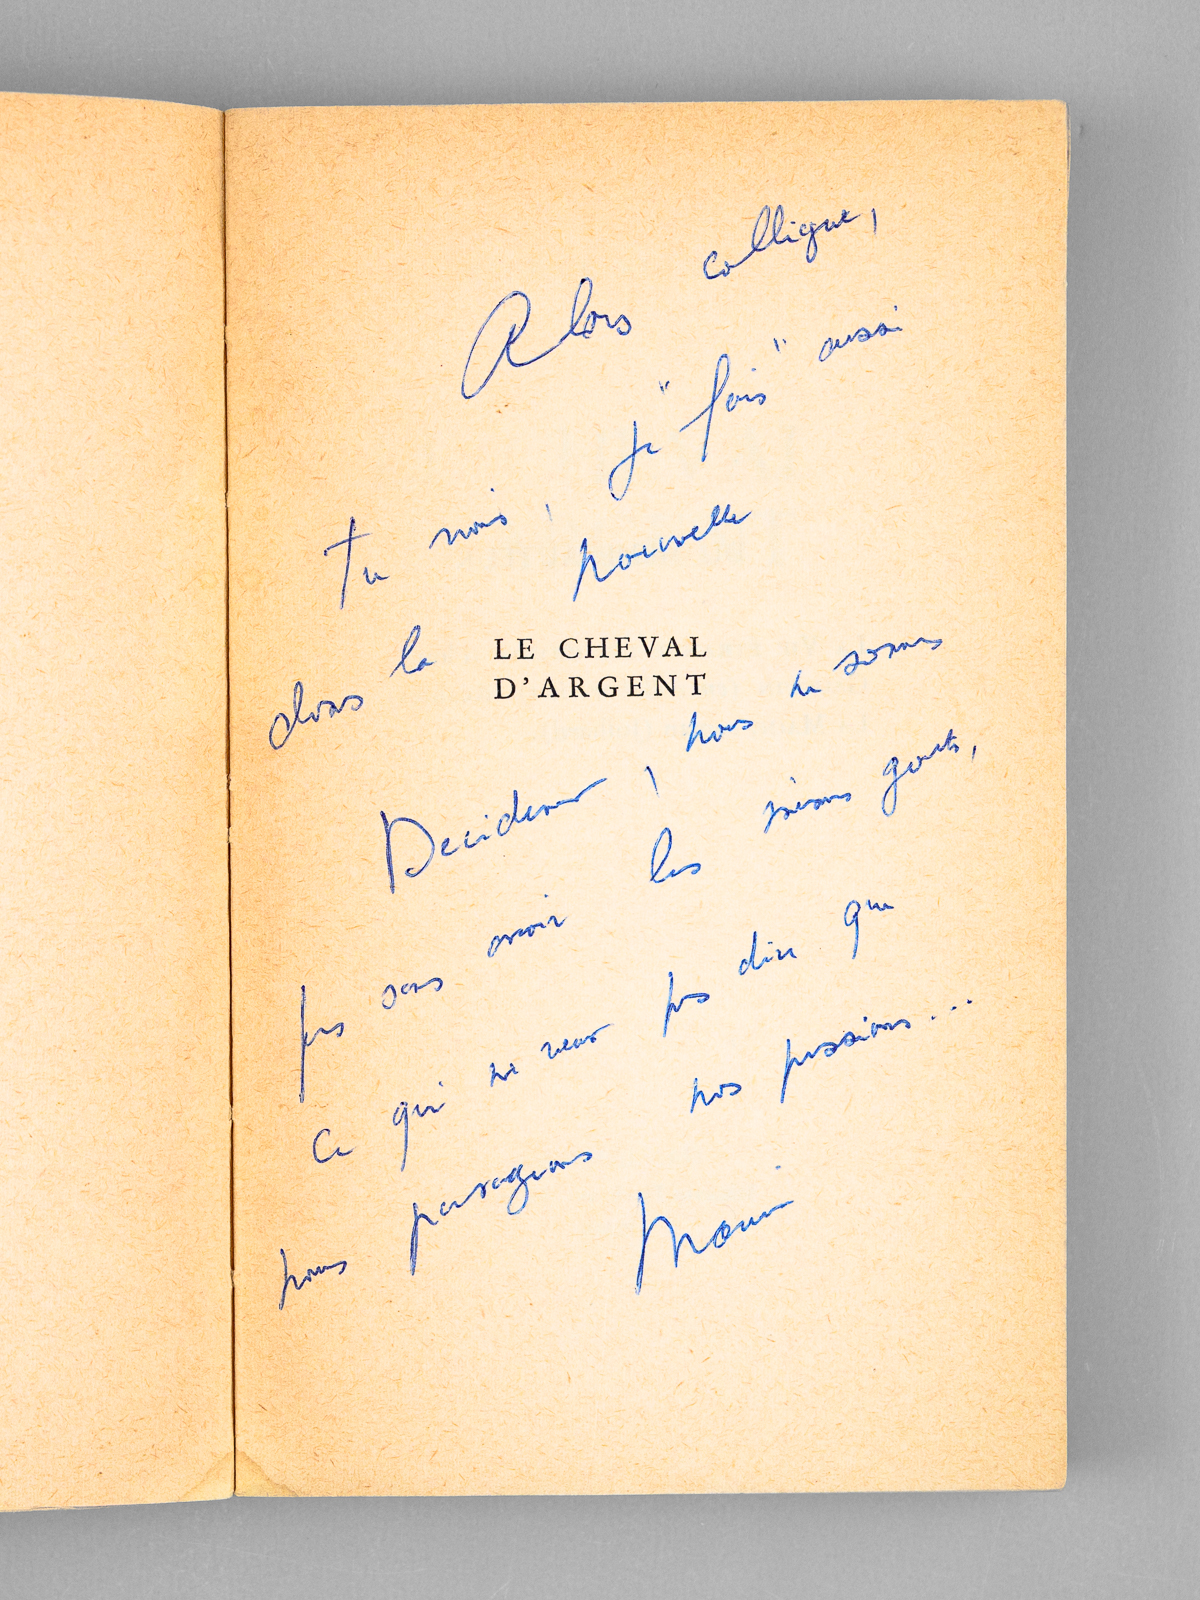 Alors collègue,
tu vois, je "fais" aussi
dans la nouvelle
LE CHEVAL
D'ARGENT
Décidément, nous ne sommes
pas sans avoir les mêmes goûts,
Ce qui ne veut pas dire que
nous partagions nos passions...